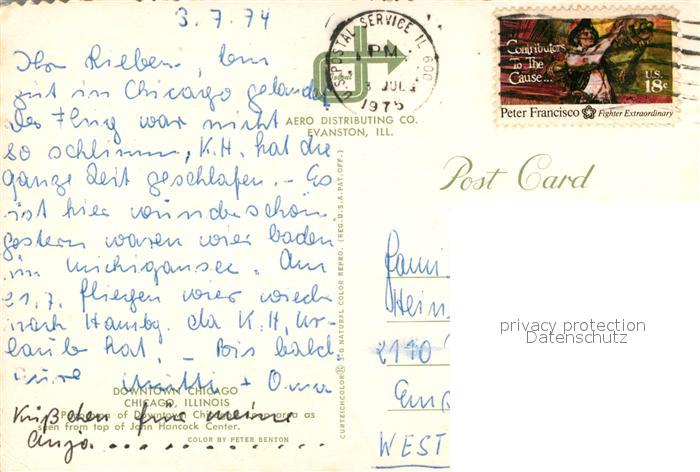 3.7.74
Ihr Lieben, bin
gut in Chicago gelandet
Der Flug war nicht
so schlimm, K.H. hat die
ganze Zeit geschlafen. – Es
ist hier wunderschön
gestern waren wier baden
im Michigansee. Am
21.7. fliegen wier wieder
nach Hambg. da K.H. Ur-
laub hat. – Bis bald
eure Mutti + Oma
Küßchen für meine
Anja..............
DOWNTOWN CHICAGO
CHICAGO, ILLINOIS
Panorama of Downtown Chicago area as
seen from top of John Hancock Center.
COLOR BY PETER BENTON
AERO DISTRIBUTING CO.
EVANSTON, ILL.
CURTEICHCOLOR® 3-D NATURAL COLOR REPRO. (REG. U.S.A. PAT. OFF.)
POSTAL SERVICE IL 600
PM
3 JUL
1975
Contributors
To The
Cause...
U.S.
18c
Peter Francisco Fighter Extraordinary
Post Card
Fami
Hein
2190
WEST
privacy protection
Datenschutz